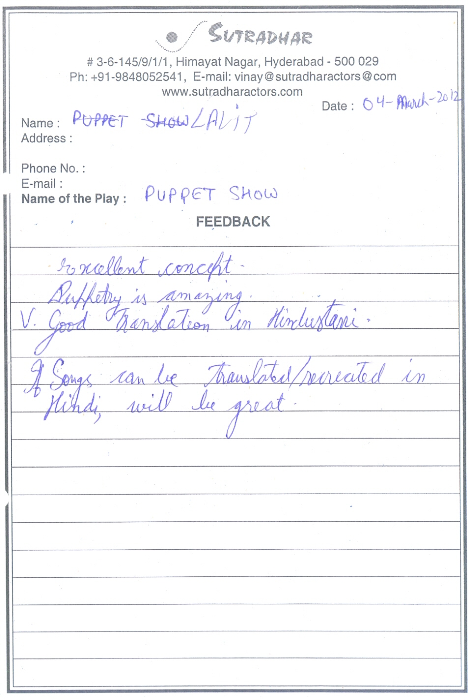 SUTRADHAR
# 3-6-145/9/1/1, Himayat Nagar, Hyderabad - 500 029
Ph: +91-9848052541, E-mail: vinay@sutradharactors@com
www.sutradharactors.com
Date : 04-March-2012
Name : PUPPET SHOW LALIT
Address :
Phone No. :
E-mail :
Name of the Play : PUPPET SHOW
FEEDBACK
Excellent concept.
Puppetry is amazing.
V. Good Translation in Hindustani.
If Songs can be translated/recreated in
Hindi, will be great.